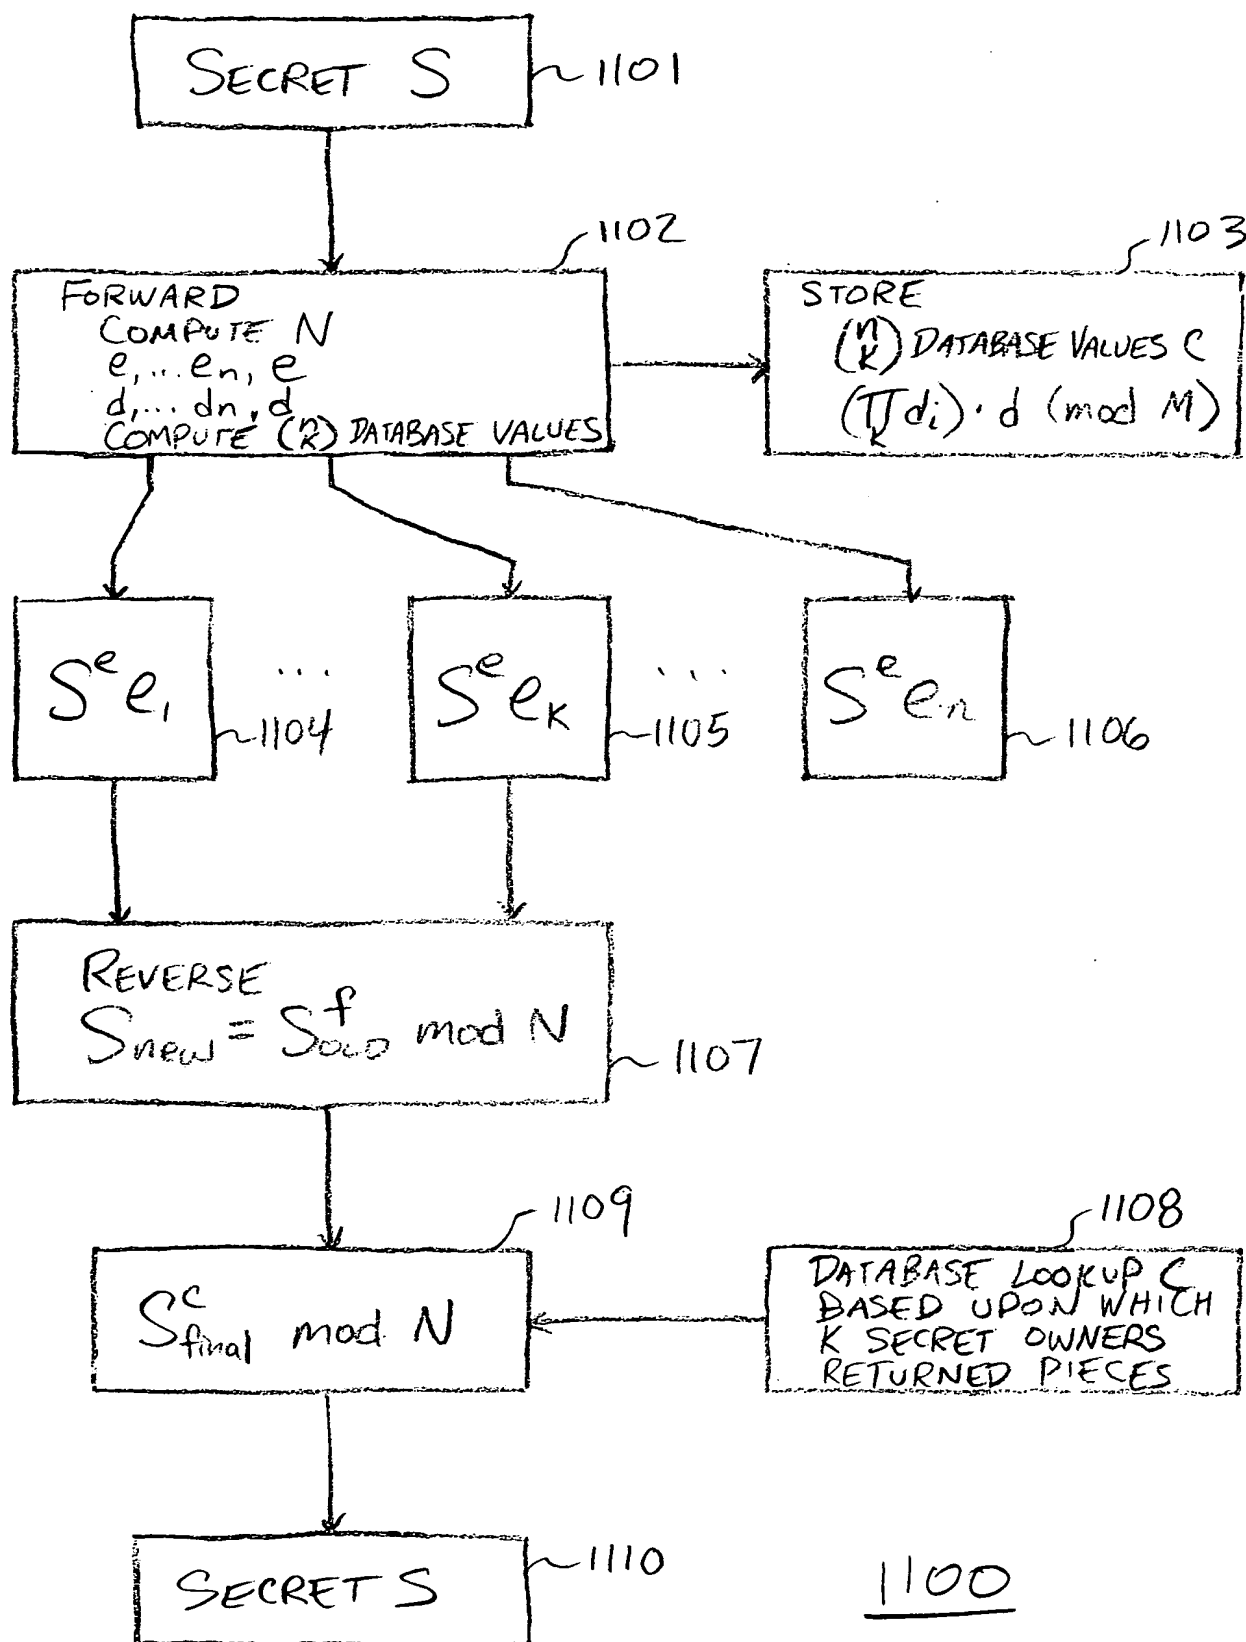 SECRET S
1101
1102
1103
FORWARD
COMPUTE N
e, ... en, e
d, ... dn, d
COMPUTE (n k) DATABASE VALUES
STORE
(n k) DATABASE VALUES C
(∏ k di) · d (mod M)
S^e e1
...
S^e eK
...
S^e en
1104
1105
1106
REVERSE
Snew = S^f OLD mod N
1107
1109
1108
S^c final mod N
DATABASE LOOKUP C
BASED UPON WHICH
K SECRET OWNERS
RETURNED PIECES
1110
SECRET S
1100